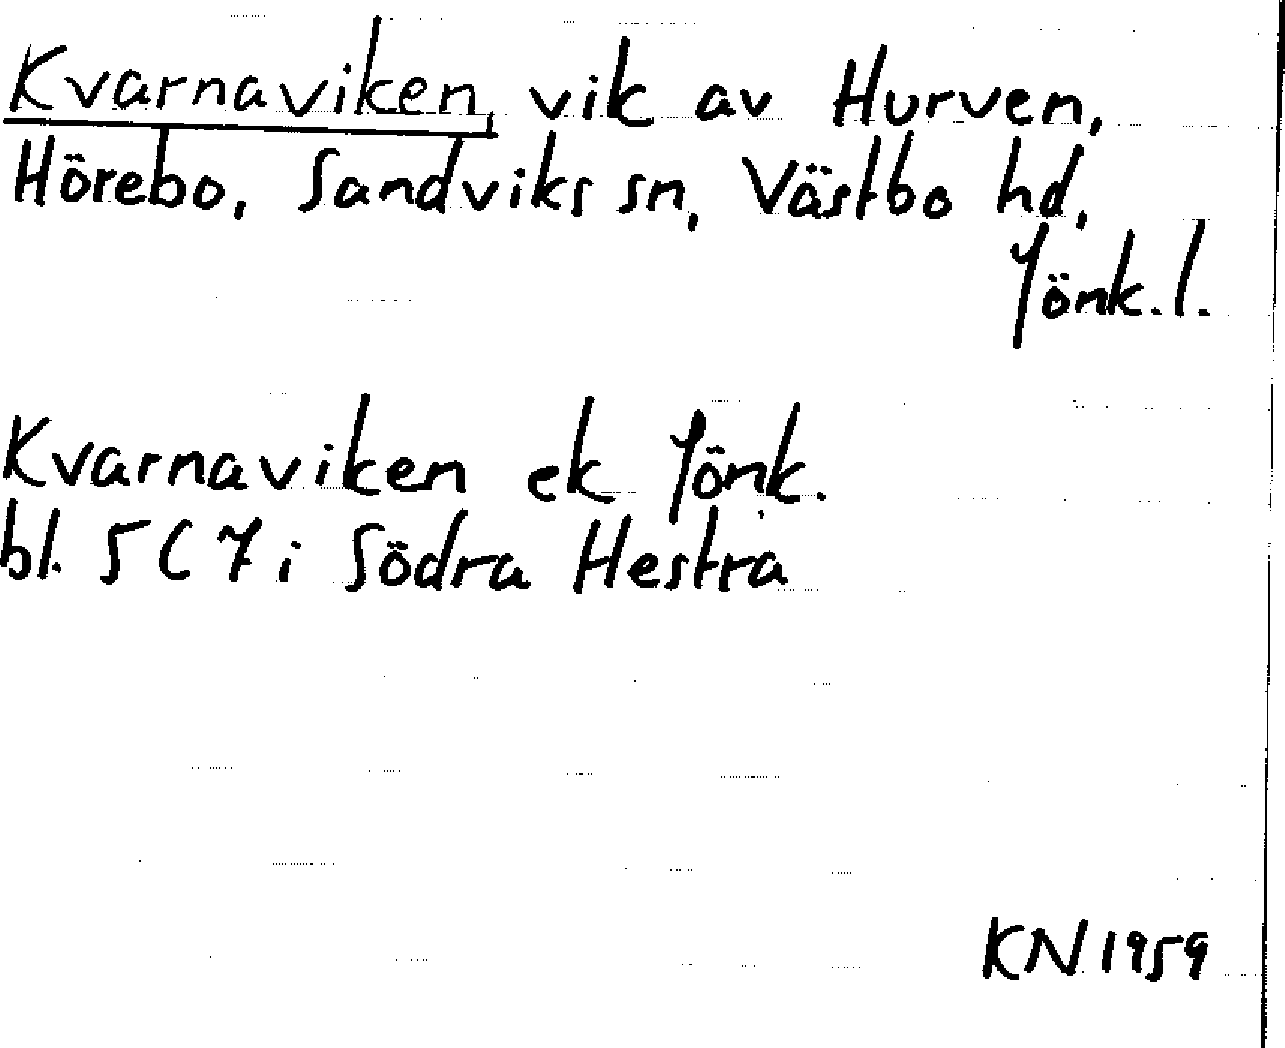 Kvarnaviken, vik av Hurven,
Hörebo, Sandviks sn, Västbo hd,
Jönk.l.
Kvarnaviken ek Jönk.
bl. 5 C 7 i Södra Hestra
KN 1959